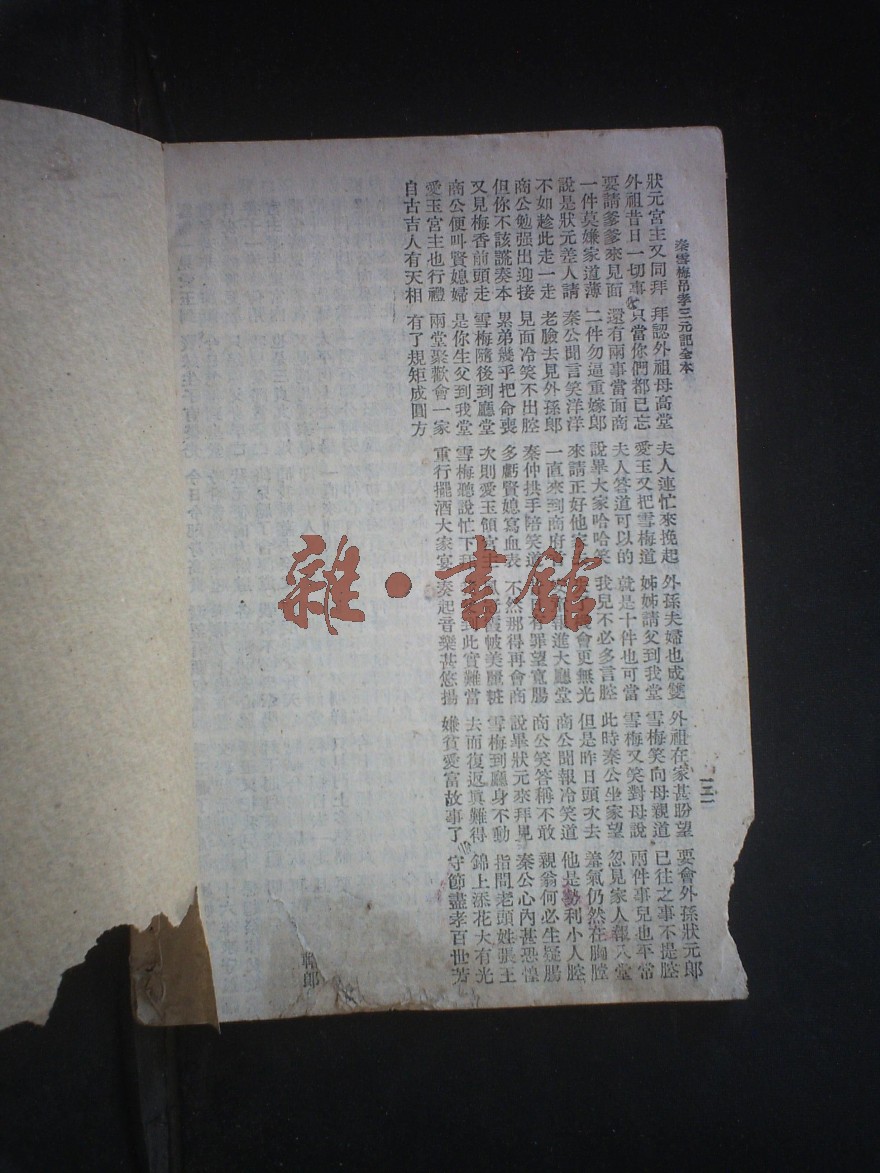 秦雪梅吊孝三元記全本
狀元宮主又同拜 拜認外祖母高堂 夫人連忙來挽起 外孫夫婦也成雙 外祖在家甚盼望 要會外孫狀元郎
外祖昔日一切事 只當你們都已忘 愛玉又把雪梅道 姊姊請父到我堂 雪梅笑向母親道 已往之事不是腔
要請爹爹來見面 還有兩事當面商 夫人答道可以的 就是十件也可當 雪梅又笑對母說 兩件事兒也平常
一件莫嫌家道薄 二件勿逼重嫁郎 說畢大家哈哈笑 我兒不必多言腔 此時秦公坐家望 忽見家人報入堂
說是狀元差人請 秦公聞言笑洋洋 來請正好他家 會更無光 但是昨日頭次去 羞氣仍然在胸膛
不如趁此走一走 老臉去見外孫郎 一直來到商府 報進大廳堂 商公聞報冷笑道 他是勢利小人腔
商公勉强出迎接 見面冷笑不出腔 秦仲拱手陪笑道 有罪望寬腸 商公笑答稱不敢 親翁何必生疑腸
但你不該謊奏本 累弟幾乎把命喪 多虧賢媳寫血表 不然那得再會商 說畢狀元來拜見 秦公心內甚恐惶
又見梅香前頭走 雪梅隨後到廳堂 次則愛玉領宮主 霞帔美麗粧 雪梅到廳身不動 指問老頭姓張王
商公便叫賢媳婦 是你生父到我堂 雪梅聽說忙下拜 到此實難當 去而復返真難得 錦上添花大有光
愛玉宮主也行禮 兩堂聚歡會一家 重行擺酒大家宴 奏起音樂甚悠揚 嫌貧愛富故事了 守節盡孝百世芳
自古吉人有天相 有了規矩成圓方
雜·書館